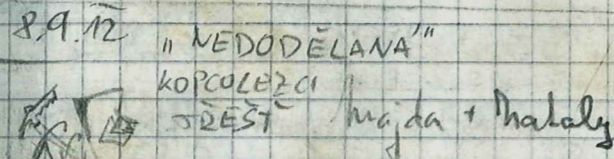 8.9.12 „NEDODĚLANÁ“
KOPCOLEZCI
TŘEŠŤ Majda + Nataly